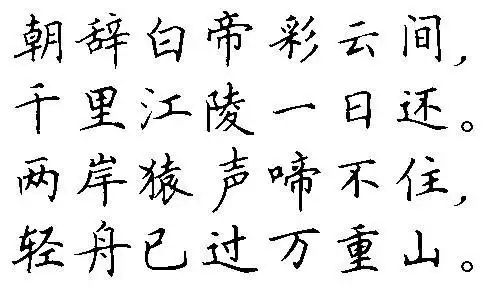 朝辞白帝彩云间,
千里江陵一日还。
两岸猿声啼不住,
轻舟已过万重山。